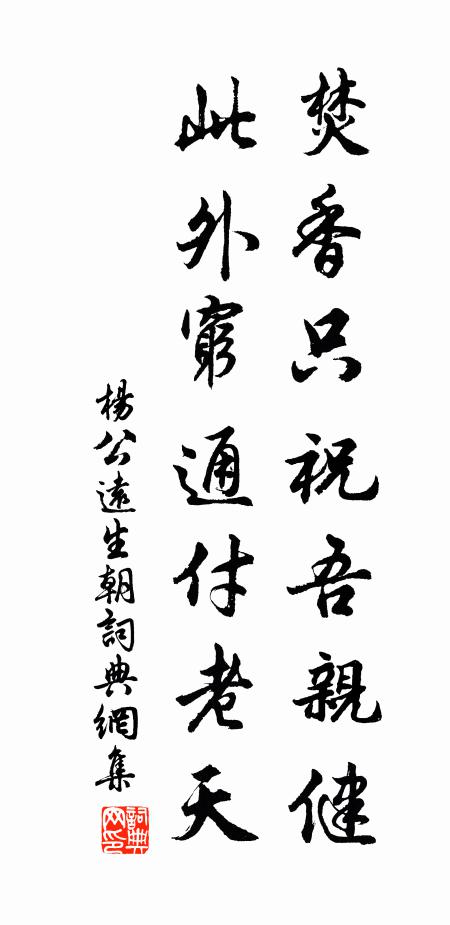 焚香只祝吾親健
此外窮通付老天
楊公遠生朝詞典網集
詞典網印